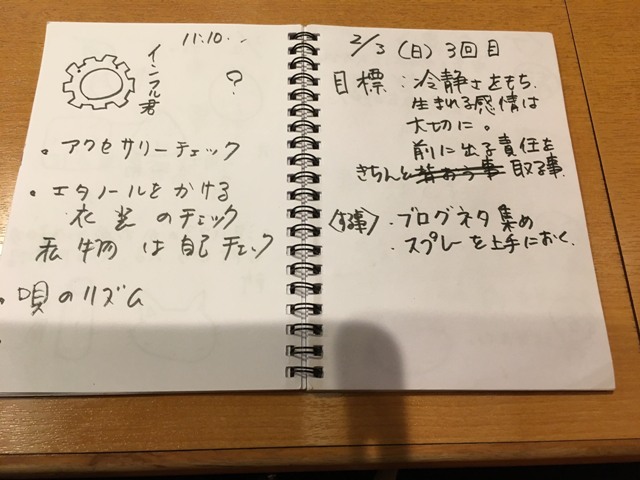 11:10..
インフル君
?
・アクセサリーチェック
・エタノールをかける
衣裳のチェック
私物は自己チェック
・唄のリズム
2/3 (日) 3回目
目標:冷静さをもち、
生まれる感情は
大切に。
前に出る責任を
きちんと 取る事.
・ブログネタ集め
・スプレーを上手におく.